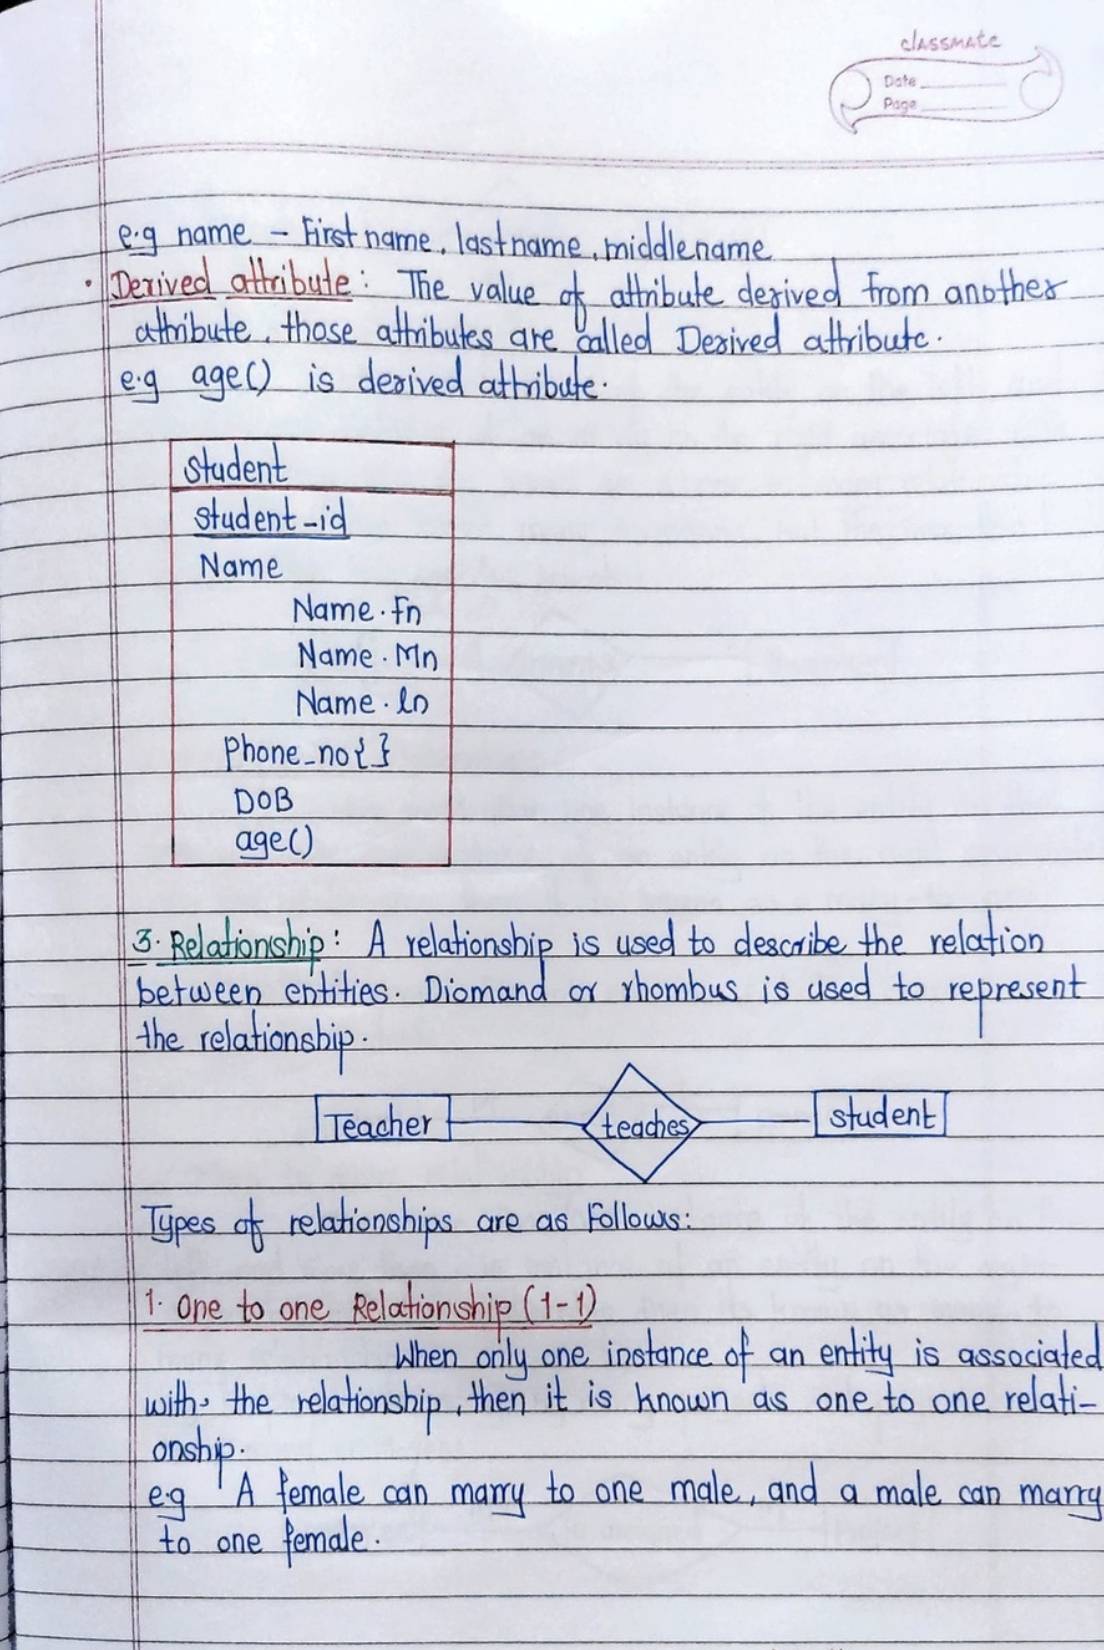 classmate
Date
Page
e.g name - First name, lastname, middlename
• Derived attribute : The value of attribute derived from another
attribute, those attributes are called Derived attribute.
e.g age() is derived attribute.
Student
Student-id
Name
Name.Fn
Name.Mn
Name.ln
Phone_no{}
DOB
age()
3. Relationship : A relationship is used to describe the relation
between entities. Diomand or rhombus is used to represent
the relationship.
Teacher teaches student
Types of relationships are as Follows:
1. One to one Relationship (1-1)
When only one instance of an entity is associated
with the relationship, then it is known as one to one relati-
onship.
e.g A female can marry to one male, and a male can marry
to one female.